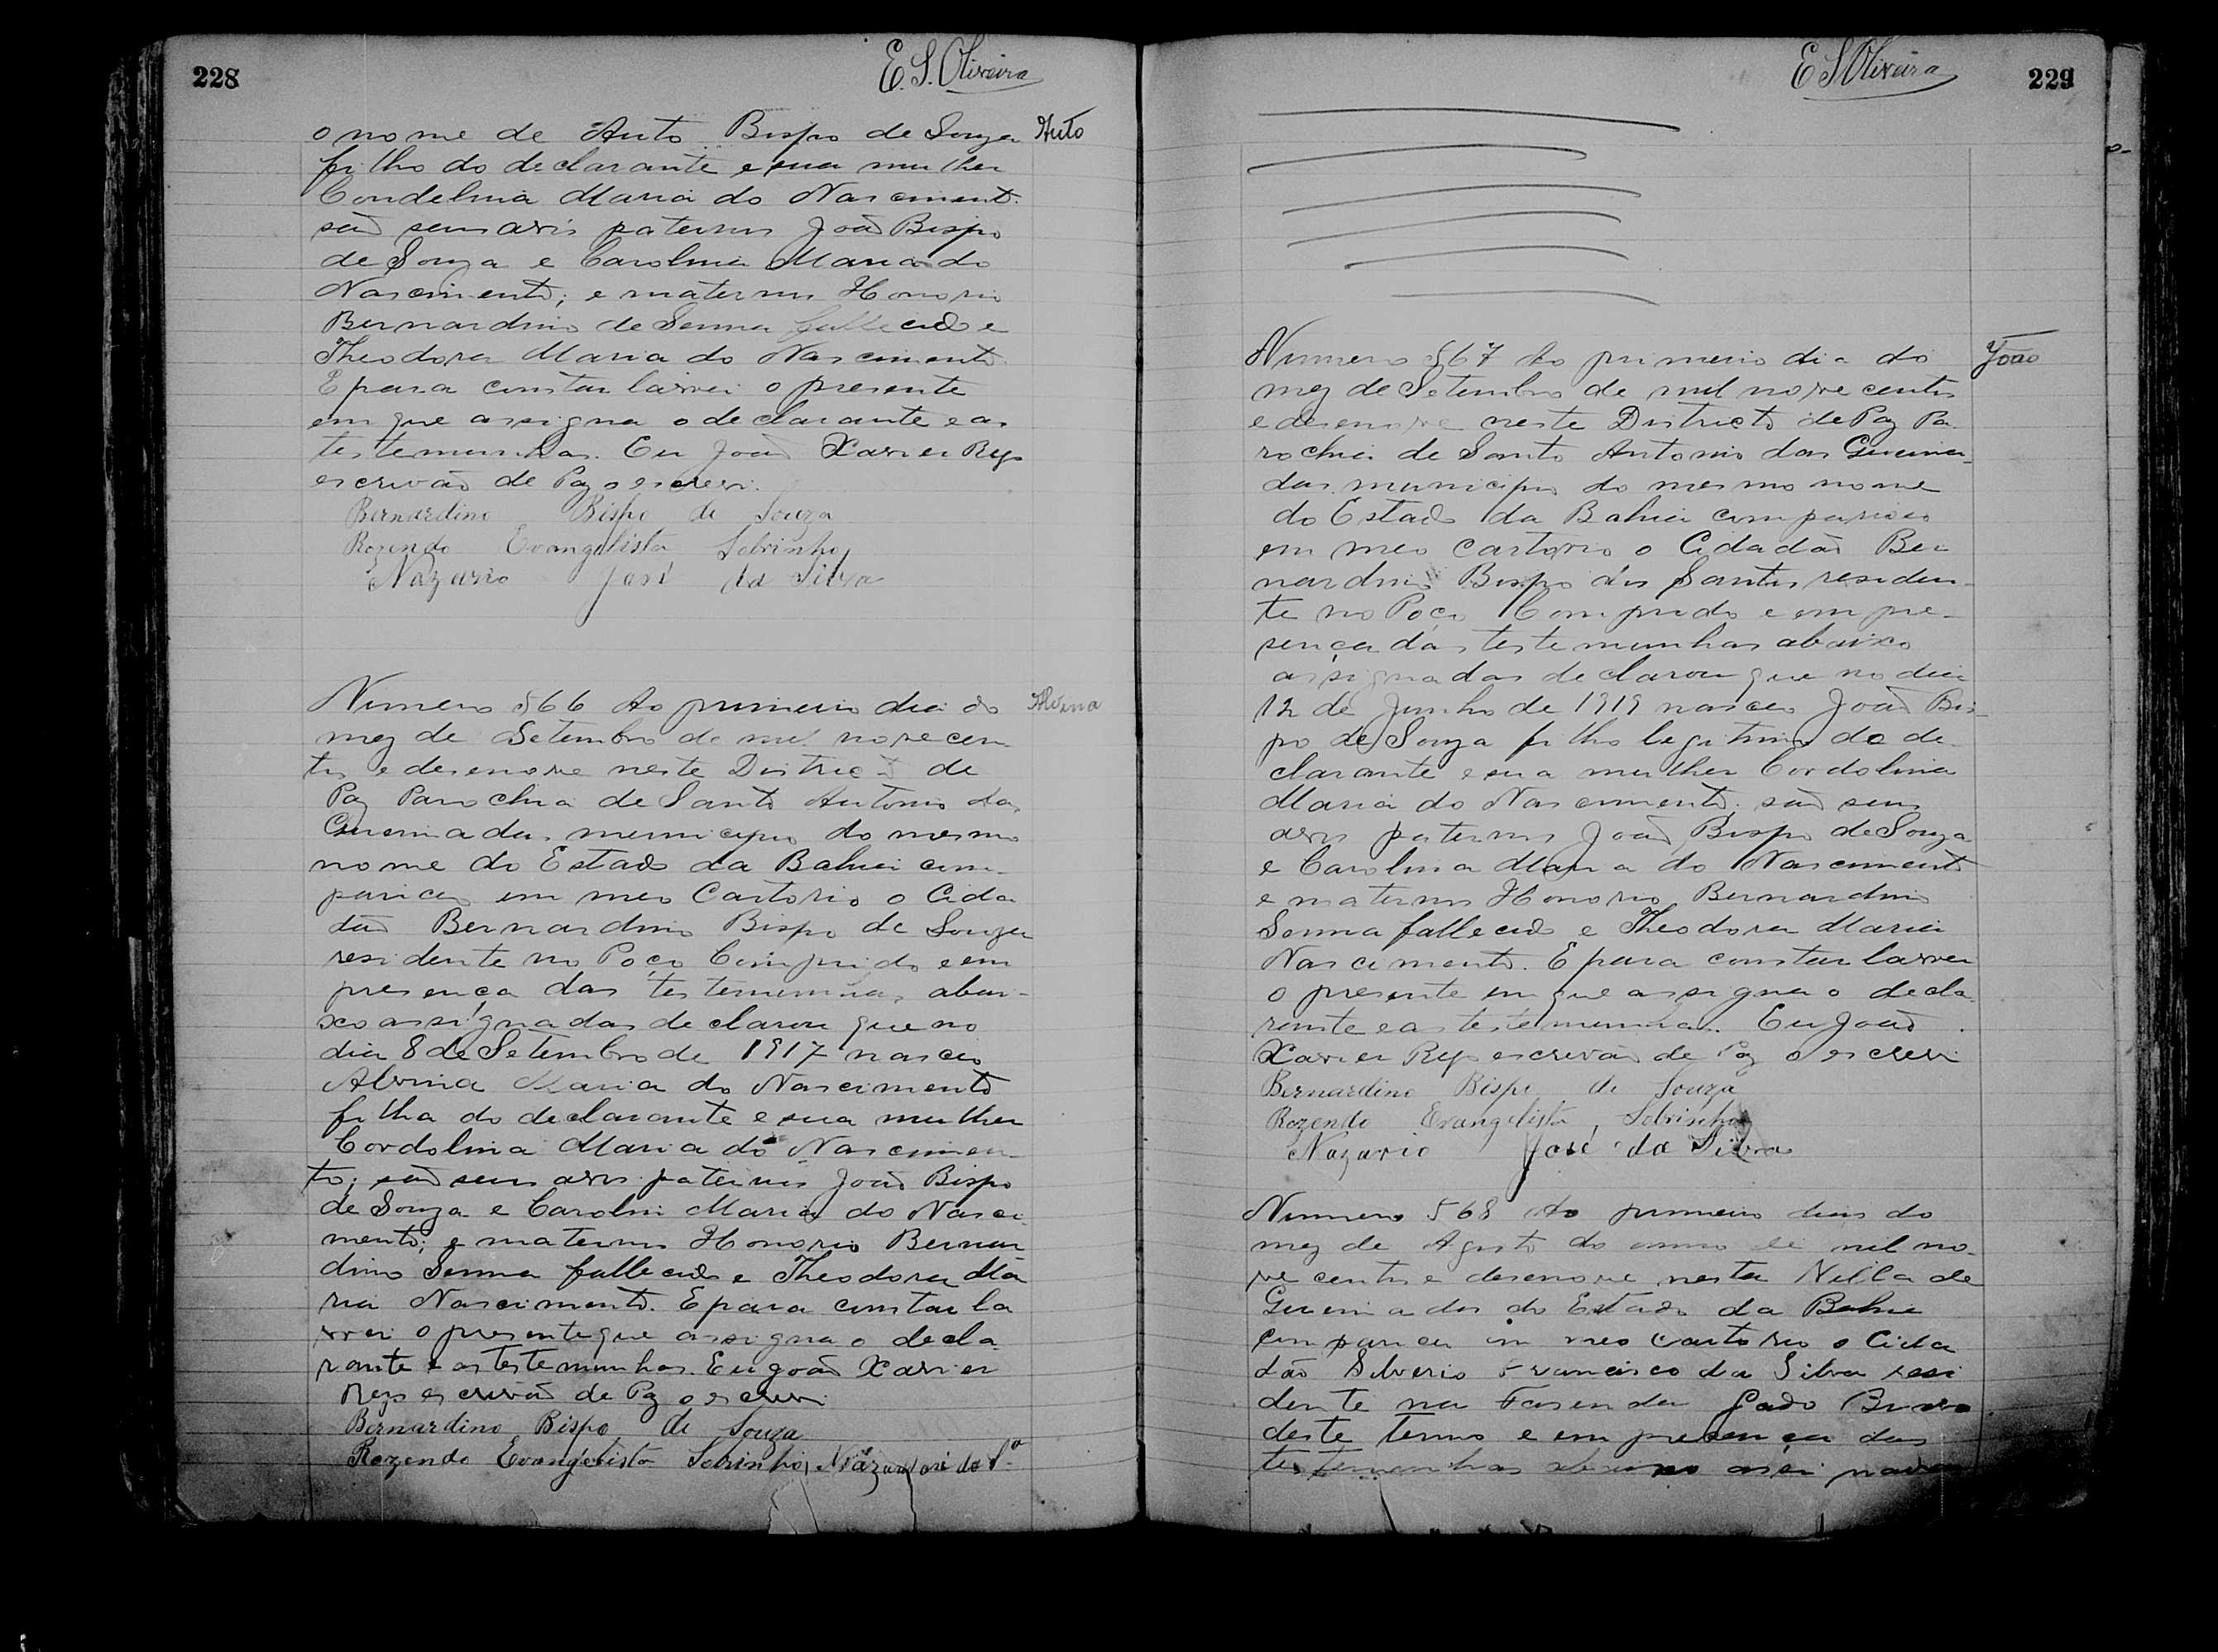 228
E. S. Oliveira
o nome de Auto Bispo de Souza
Auto
filho do declarante e sua mulher
Condelina Maria do Nasciment.
são seus avós paternos João Bispo
de Souza e Carolina Maria do
Nascimento; e maternos Honorio
Bernardino de Senna fallecido e
Theodora Maria do Nascimento
E para constar lavrei o presente
em que assigna o declarante e as
testemunhas. Eu João Xavier Reys
escrivão de Paz o escrevi.
Bernardino Bispo de Souza
Rozendo Evangelista Sobrinho,
Nazario José da Silva
Numero 566 Ao primeiro dia do
Alvina
mez de Setembro de mil novecen-
tos e desenove neste Districto de
Paz Parochia de Santo Antonio das
Queimadas, municipio do mesmo
nome do Estado da Bahia com-
pariceo em meo Cartorio o Cida
dão Bernardino Bispo de Souza
residente no Poço Comprido e em
presença das testemunhas abai-
xo assignadas declarou que no
dia 8 de Setembro de 1917 nasceo
Alvina Maria do Nascimento
filha do declarante e sua mulher
Cordolina Maria do Nascimen-
to; são seus avos paternos João Bispo
de Souza e Carolin Maria do Nasci
mento; e maternos Honorio Bernar
dino Senna fallecido e Theodora Ma
ria Nascimento. E para constar la
vrei o presente que assigna o decla
rante e as testemunhas. Eu João Xavier
Reys escrivão de Paz o escrevi
Bernardino Bispo de Souza
Rozendo Evangelista Sobrinho, Nazar José da Sª
E S Oliveira
229
Numero 567 Ao primeiro dia do
João
mez de Setembro de mil novecentos
e desenove neste Districto de Paz Pa
rochia de Santo Antonio das Queima-
das municipio do mesmo nome
do Estado da Bahia compariceo
em meo cartorio o Cidadão Ber
nardino Bispo dos Santos residen-
te no Poço Comprido e em pre-
sença das testemunhas abaixo
assignadas declarou que no dia
12 de Junho de 1919 nasceo João Bis-
po de Souza filho legitimo do de-
clarante e sua mulher Cordolina
Maria do Nascimento. são seus
avos paternos João Bispo de Souza
e Carolina Maria do Nascimento
e maternos Honorio Bernardino
Senna fallecido e Theodora Maria
Nascimento. E para constar lavrei
o presente em que assigna o decla-
rante e as testemunhas. Eu João
Xavier Reys escrivão de Paz o escrevi
Bernardino Bispo de Souza
Rozendo Evangelista, Sobrinho
Nazario José da Silva
Numero 568 Ao primeiro dias do
mez de Agosto do anno de mil no-
ve centos e desenove nesta Villa de
Queimadas do Estado da Bahia
compareceu em meo cartorio o Cida
dão Silverio Francisco da Silva resi
dente na Fasenda Gado Bravo
deste termo e em presença das
testemunhas abaixo assi